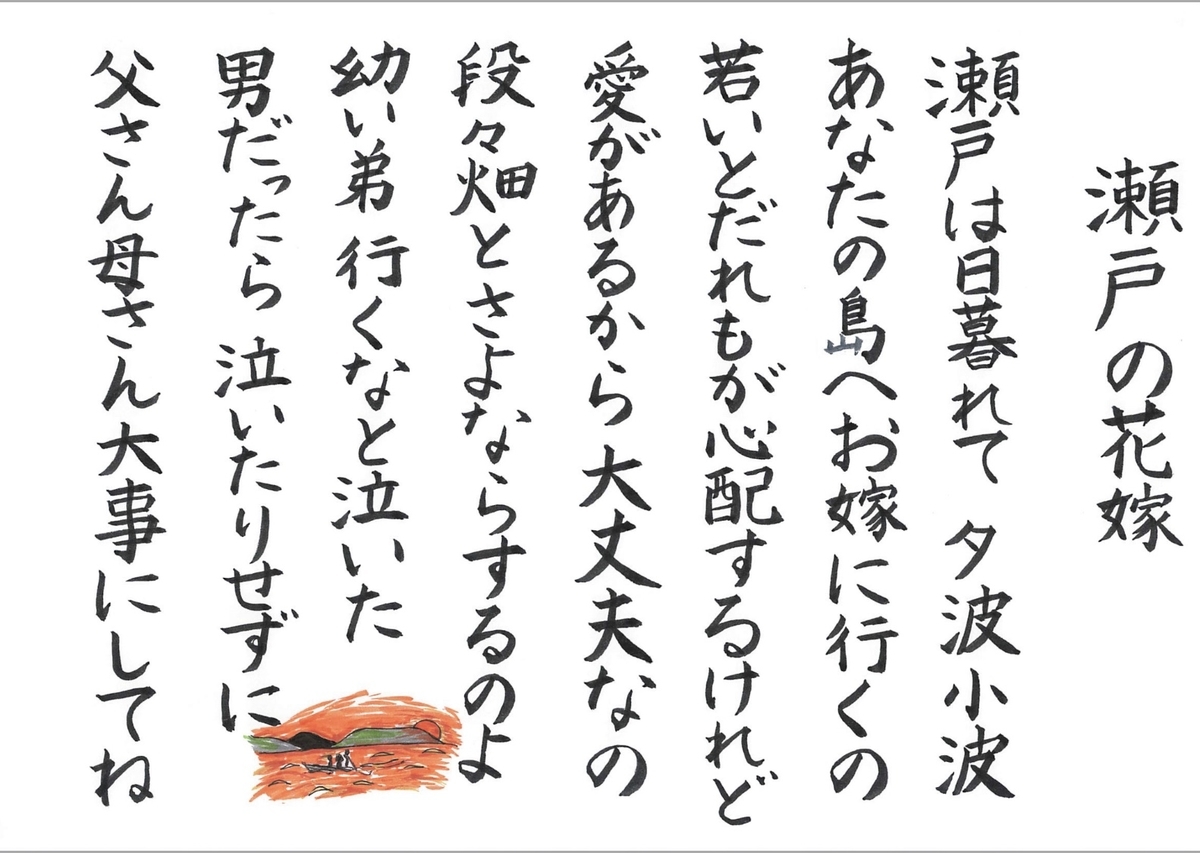 瀬戸の花嫁
瀬戸は日暮れて 夕波小波
あなたの島へお嫁に行くの
若いとだれもが心配するけれど
愛があるから大丈夫なの
段々畑とさよならするのよ
幼い弟 行くなと泣いた
男だったら 泣いたりせずに
父さん母さん大事にしてね